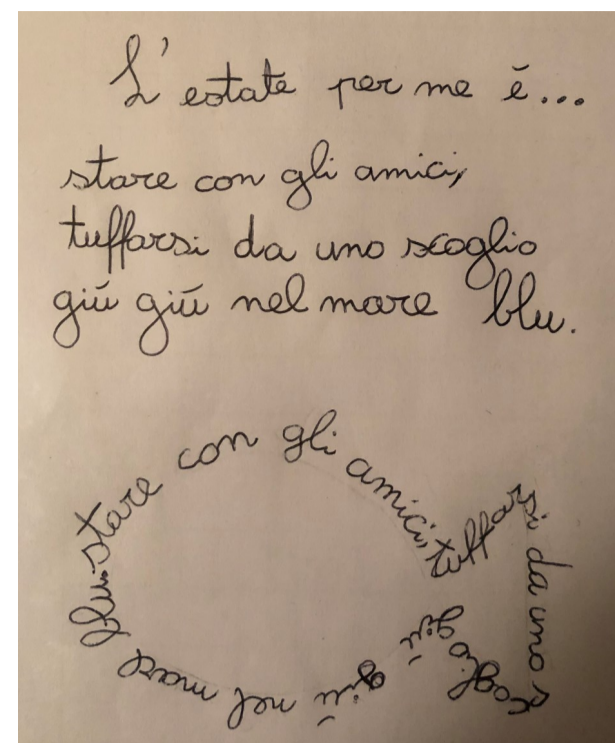 L'estate per me è...
stare con gli amici,
tuffarsi da uno scoglio
giù giù nel mare blu.
stare con gli amici, tuffarsi da uno scoglio giù giù nel mare blu.